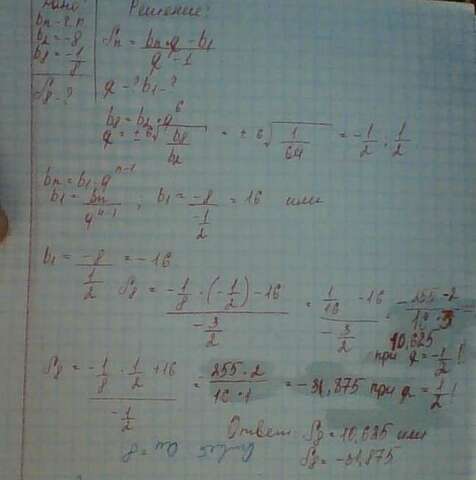 Дано: Решение:
bn - г.п.
b2 = -8
b8 = -1/8
S8 - ?
Sn = (bn·q - b1)/(q - 1)
q - ? b1 - ?
b8 = b2 · q^6
q = ± 6√(b8/b2) = ± 6√(1/64) = -1/2 ; 1/2
bn = b1 · q^(n-1)
b1 = bn/q^(n-1) ; b1 = -8/(-1/2) = 16 или
b1 = -8/(1/2) = -16
S8 = (-1/8 · (-1/2) - 16)/(-3/2) = (1/16 - 16)/(-3/2) = (-255 · 2)/(16 · 3)
10,625
при q = -1/2 !
S8 = (-1/8 · 1/2 + 16)/(-1/2) = (255 · 2)/(16 · 1) = -31,875 при q = 1/2 !
Ответ: S8 = 10,625 или
S8 = -31,875